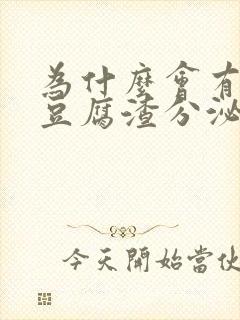 為什麼會有
豆腐渣分泌
今天開始當伙